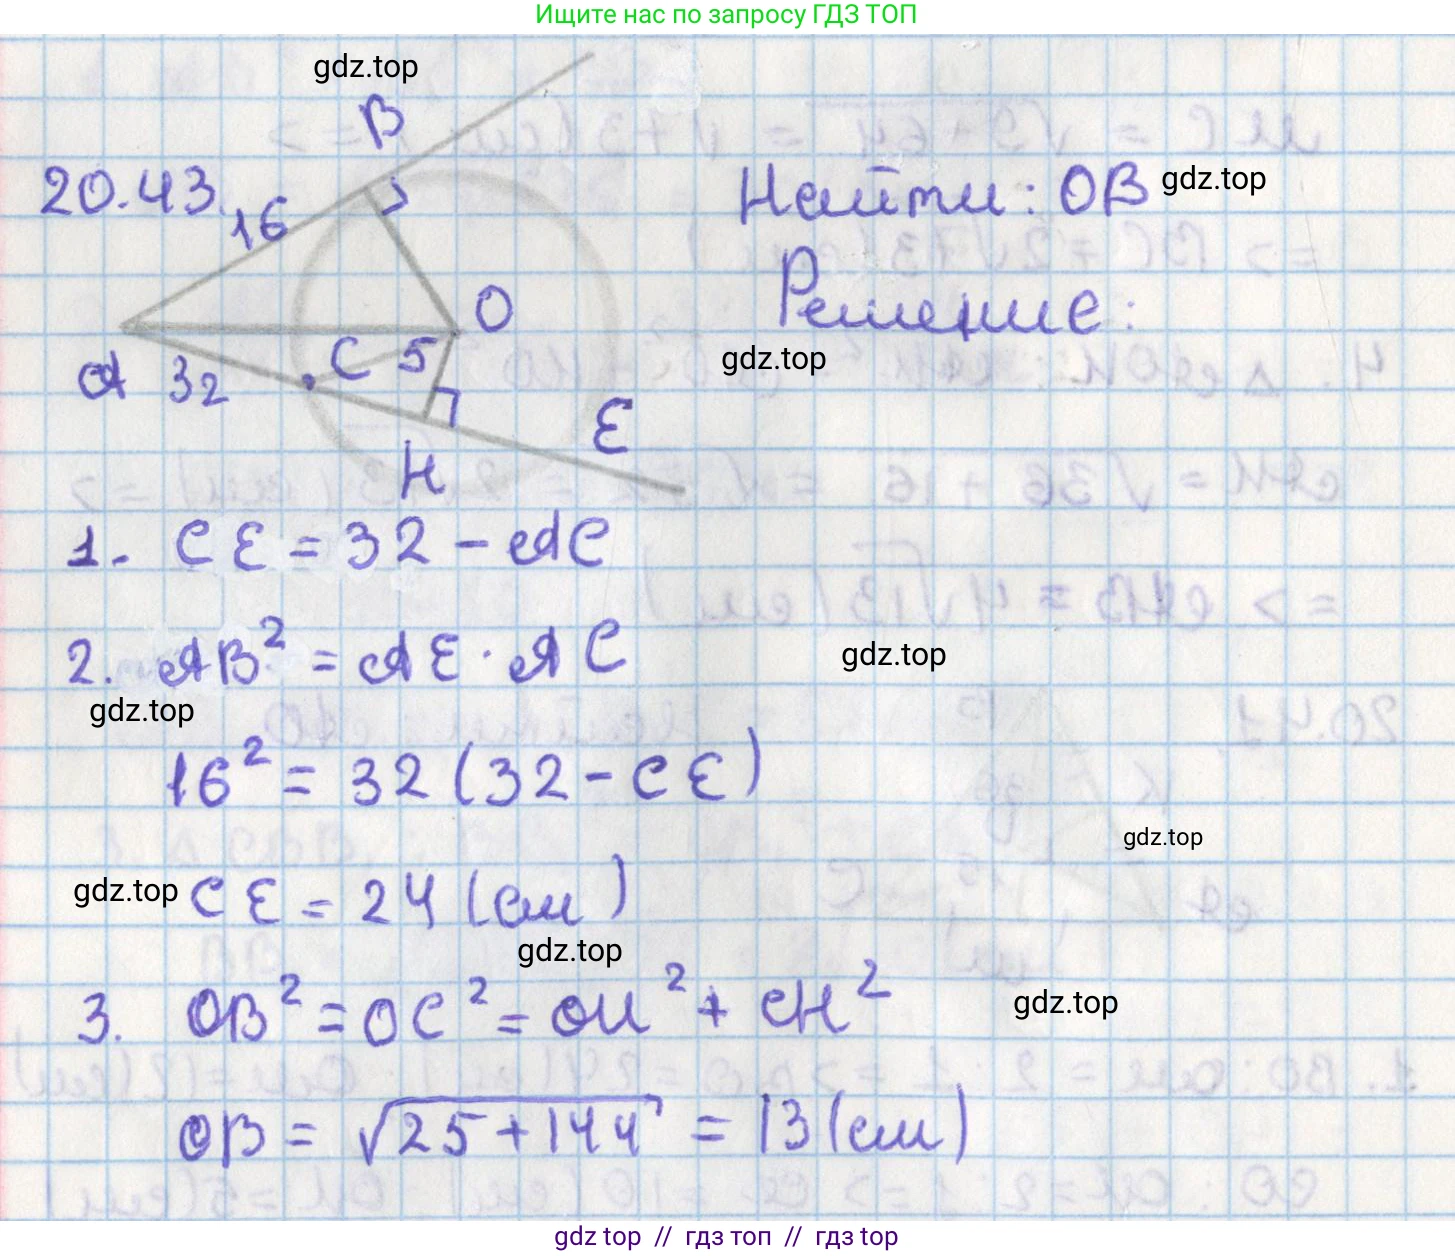 Ищите нас по запросу ГДЗ ТОП
gdz.top
B
20.43.
16
Найти: OB
gdz.top
Решение:
O
A
32
C
5
gdz.top
E
H
1. CE = 32 - AC
2. AB² = AE · AC
gdz.top
gdz.top
16² = 32 (32 - CE)
gdz.top
gdz.top
CE = 24 (см)
gdz.top
3. OB² = OC² = OH² + CH²
gdz.top
OB = √25 + 144 = 13 (см)
gdz.top // гдз топ // гдз top